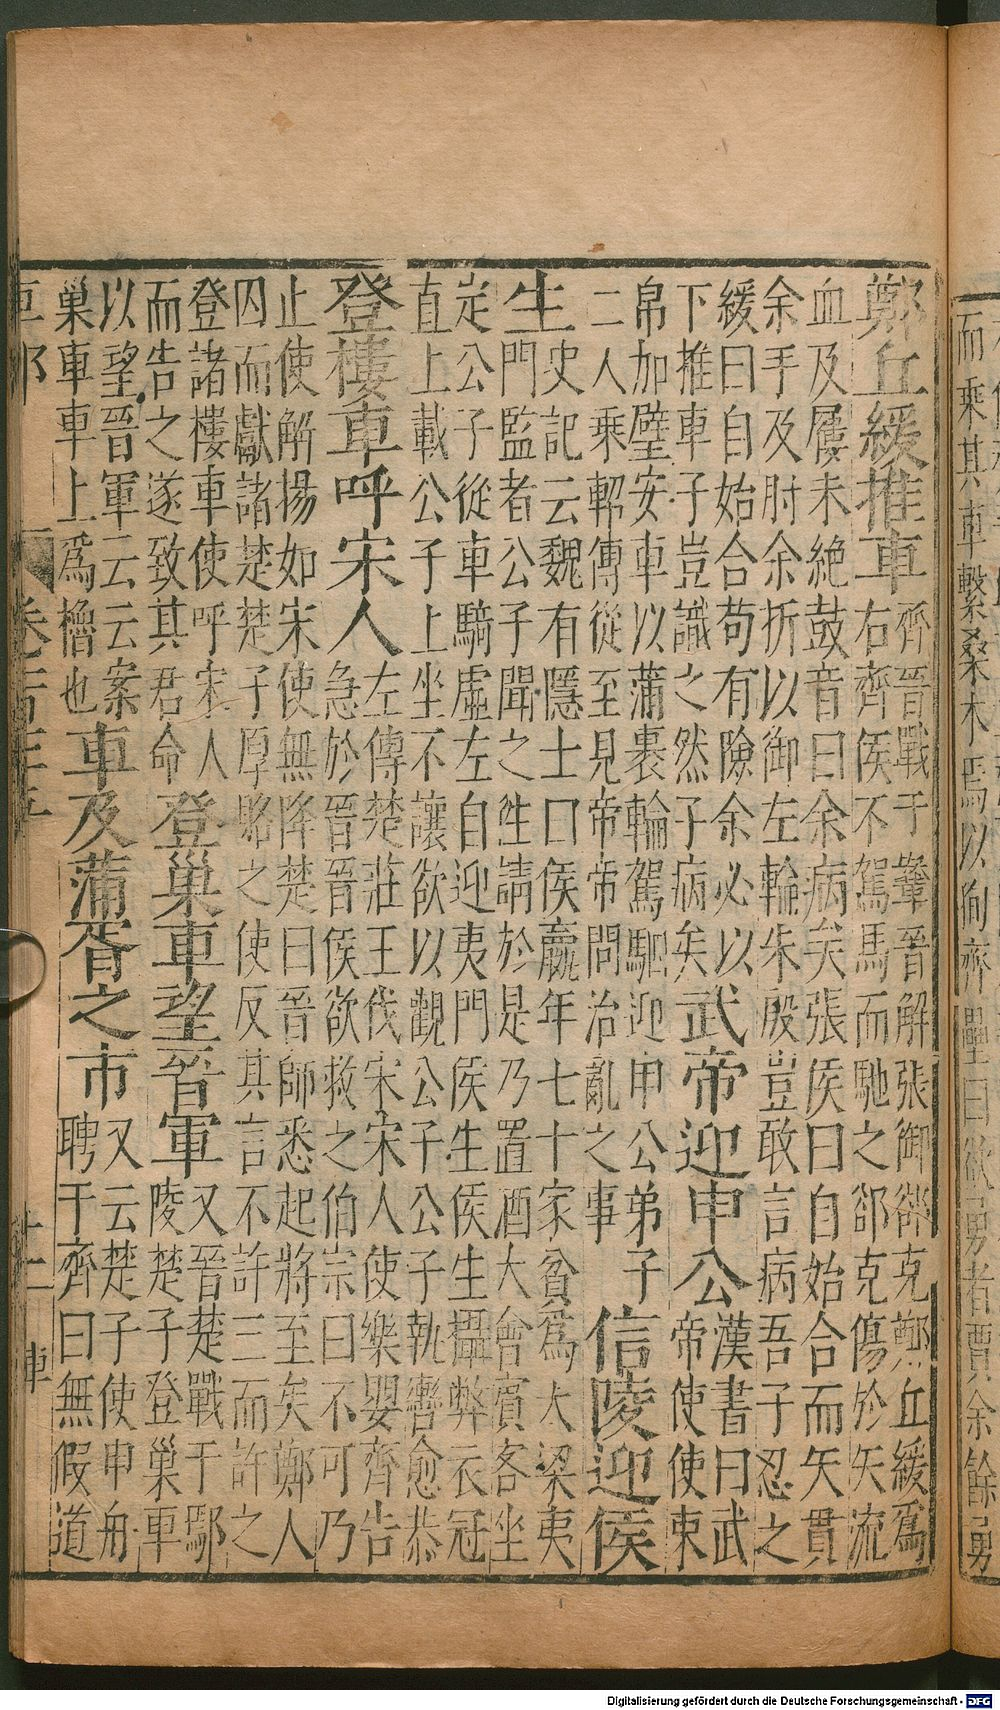 而乘其車繫桑本焉以徇齊壘曰欲勇者賈余餘勇
鄭丘緩推車
齊晉戰于鞌晉解張御郤克鄭丘緩爲
右齊侯不駕馬而馳之郤克傷於矢流
血及屨未絕鼓音曰余病矣張侯曰自始合而矢貫
余手及肘余折以御左輪朱殷豈敢言病吾子忍之
緩曰自始合苟有險余必以
下推車子豈識之然子病矣
武帝迎申公
漢書曰武
帝使使束
帛加璧安車以蒲裹輪駕駟迎申公弟子
二人乘軺傳從至見帝帝問治亂之事
信陵迎侯
生
史記云魏有隱士曰侯嬴年七十家貧爲大梁夷
門監者公子聞之徃請於是乃置酒大會賓客坐
定公子從車騎虛左自迎夷門侯生侯生攝弊衣冠
直上載公子上坐不讓欲以觀公子公子執轡愈恭
登樓車呼宋人
左傳楚莊王伐宋宋人使樂嬰齊告
急於晉晉侯欲救之伯宗曰不可乃
止使解揚如宋使無降楚曰晉師悉起將至矣鄭人
囚而獻諸楚楚子厚賂之使反其言不許三而許之
登諸樓車使呼宋人
而告之遂致其君命
登巢車望晉軍
又晉楚戰于鄢
陵楚子登巢車
以望晉軍云云案
巢車車上爲櫓也
車及蒲胥之市
又云楚子使申舟
聘于齊曰無假道
車部
十二
Digitalisierung gefördert durch die Deutsche Forschungsgemeinschaft - DFG